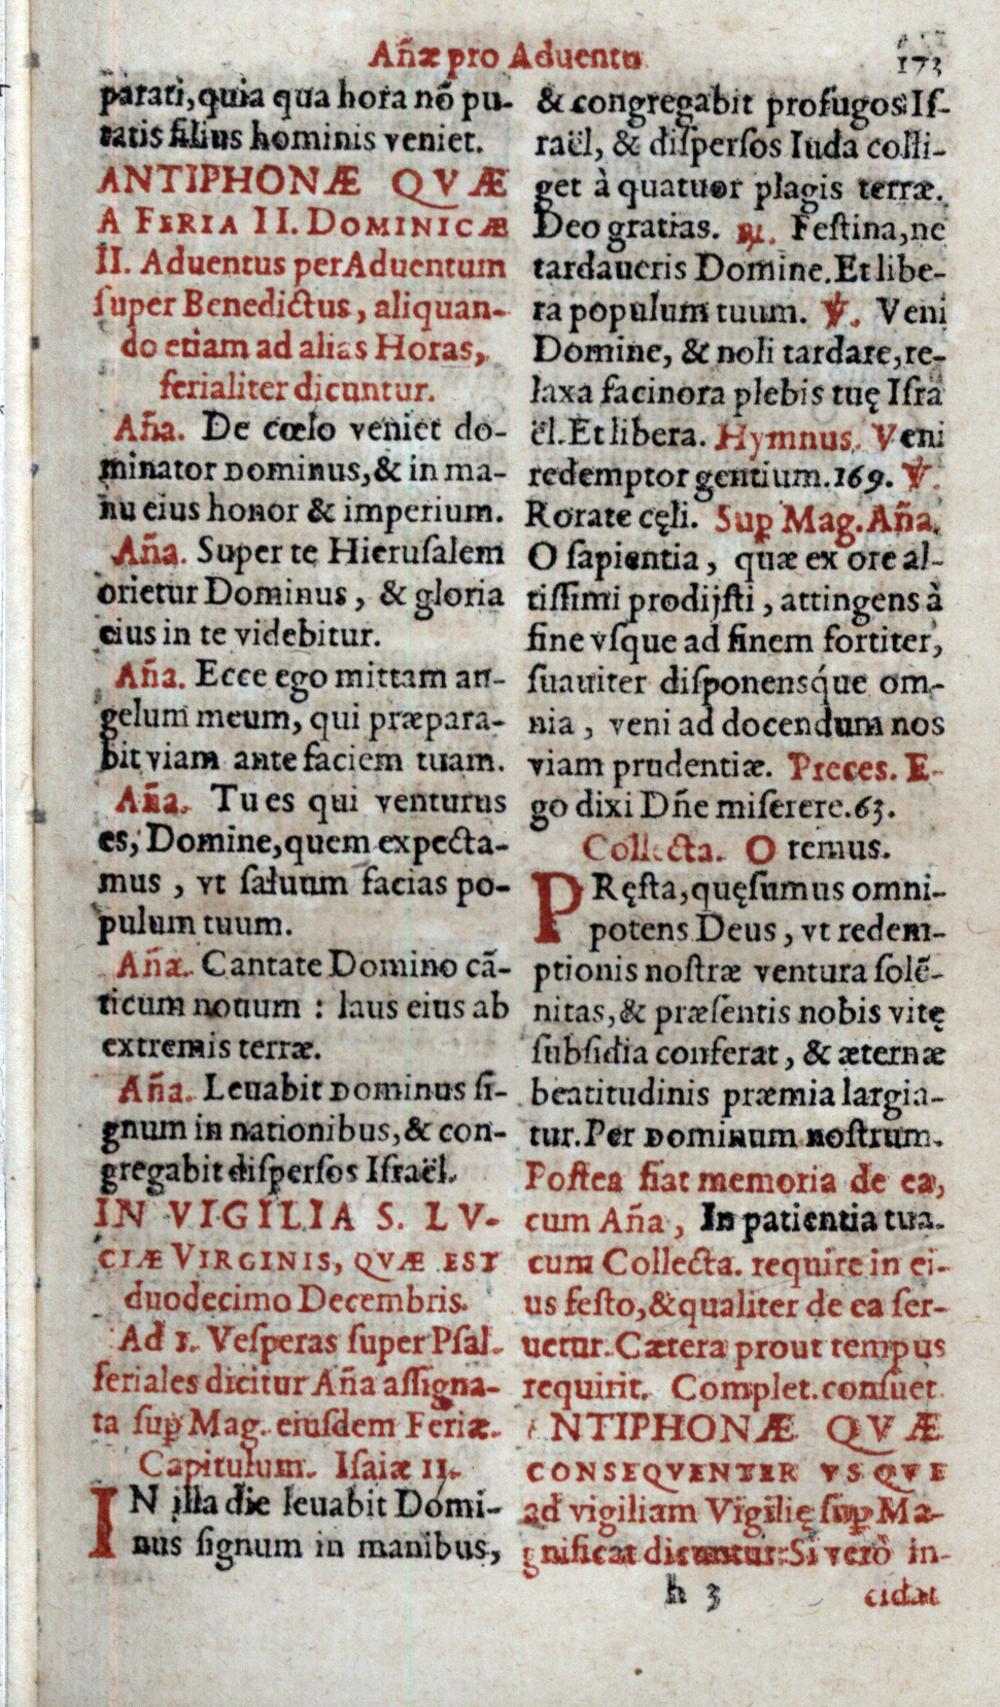 Añæ pro Aduentu
173
parati, quia qua hora nõ pu-
tatis filius hominis veniet.
ANTIPHONÆ QVÆ
A FERIA II. DOMINICÆ
II. Aduentus per Aduentum
ſuper Benedictus, aliquan-
do etiam ad alias Horas,
ferialiter dicuntur.
Aña. De cœlo veniet do-
minator Dominus, & in ma-
nu eius honor & imperium.
Aña. Super te Hieruſalem
orietur Dominus, & gloria
eius in te videbitur.
Aña. Ecce ego mittam an-
gelum meum, qui præpara-
bit viam ante faciem tuam.
Aña. Tu es qui venturus
es, Domine, quem expecta-
mus, vt ſaluum facias po-
pulum tuum.
Aña. Cantate Domino cã-
ticum nouum : laus eius ab
extremis terræ.
Aña. Levabit Dominus ſi-
gnum in nationibus, & con-
gregabit diſperſos Iſraël.
IN VIGILIA S. LV-
CIÆ VIRGINIS, QVÆ EST
duodecimo Decembris.
Ad 1. Veſperas ſuper Pſal.
feriales dicitur Aña aſſigna-
ta ſup Mag. eiuſdem Feriæ.
Capitulum. Iſaiæ 11.
IN illa die leuabit Domi-
nus ſignum in manibus,
& congregabit profugos Iſ-
raël, & diſperſos Iuda colli-
get à quatuor plagis terræ.
Deo gratias. ℟. Feſtina, ne
tardaueris Domine. Et libe-
ra populum tuum. ℣. Veni
Domine, & noli tardare, re-
laxa facinora plebis tuę Iſra
ël. Et libera. Hymnus. Veni
redemptor gentium. 169. ℣.
Rorate cęli. Sup Mag. Aña.
O ſapientia, quæ ex ore al-
tiſſimi prodijſti, attingens à
fine vſque ad finem fortiter,
ſuauiter diſponensq́ue om-
nia, veni ad docendum nos
viam prudentiæ. Preces. E-
go dixi Dñe miſerere. 63.
Collecta. Oremus.
PRęſta, quęſumus omni-
potens Deus, vt redem-
ptionis noſtræ ventura ſolẽ-
nitas, & præſentis nobis vitę
ſubſidia conferat, & æternæ
beatitudinis præmia largia-
tur. Per Dominum noſtrum.
Poſtea fiat memoria de ea,
cum Aña, In patientia tua.
cum Collecta. require in ei-
us feſto, & qualiter de ea ſer-
uetur. Cætera prout tempus
requirit. Complet. conſuet.
ANTIPHONÆ QVÆ
CONSEQVENTER VSQVE
ad vigiliam Vigilię ſup Ma-
gnificat dicuntur: Si verò in-
h 3
cidat